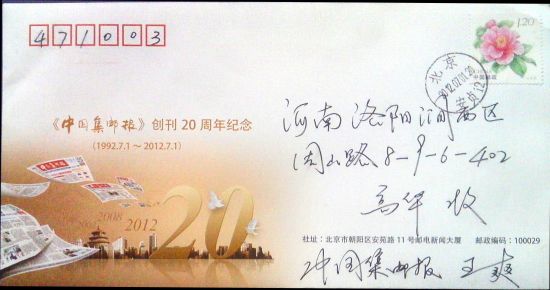 471003
1.20
中国邮政
北京
2012.07.01.20
《中国集邮报》创刊20周年纪念
(1992.7.1～2012.7.1)
河南洛阳涧西区
周山路8-9-6-402
高华收
2008
2012
20
社址：北京市朝阳区安苑路11号邮电新闻大厦 邮政编码：100029
中国集邮报 王爽